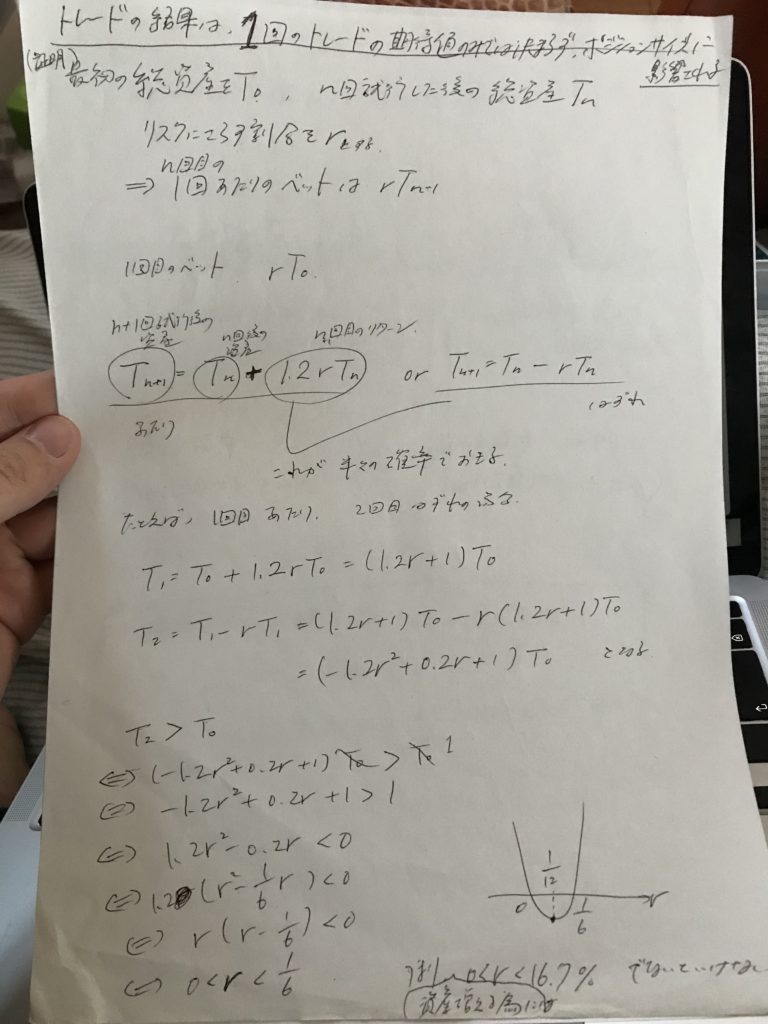 トレードの結果は、1回のトレードの期待値のみでは決まらず、ポジションサイズに
影響される
(証明)
最初の総資産をT₀、n回試行した後の総資産Tn
リスクにさらす割合をrとする.
n回目の
⇒ 1回あたりのベットは rTn-1
1回目のベット rT₀.
n+1回試行後の資産
n回後の資産
n回目のリターン
Tn+1 = Tn + 1.2rTn or Tn+1 = Tn - rTn
あたり
はずれ
これが 半々の確率でおきる.
たとえば、1回目 あたり. 2回目 はずれの場合.
T₁ = T₀ + 1.2rT₀ = (1.2r+1)T₀
T₂ = T₁ - rT₁ = (1.2r+1)T₀ - r(1.2r+1)T₀
= (-1.2r²+0.2r+1)T₀ となる
T₂ > T₀
⇔ (-1.2r²+0.2r+1)T₀ > T₀ 1
⇔ -1.2r²+0.2r+1 > 1
⇔ 1.2r²-0.2r < 0
⇔ 1.2(r²-1/6r) < 0
⇔ r(r-1/6) < 0
⇔ 0 < r < 1/6
1/12
0 1/6 r
つまり 0<r<16.7% でないといけない
資産が増える為には